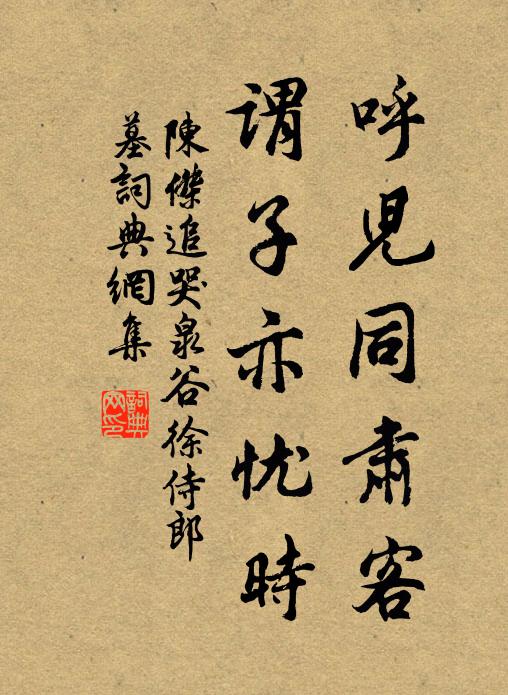 呼児同肅客
謂子亦忧時
陳傑追哭泉谷徐侍郎
墓詞典網集
詞典网印